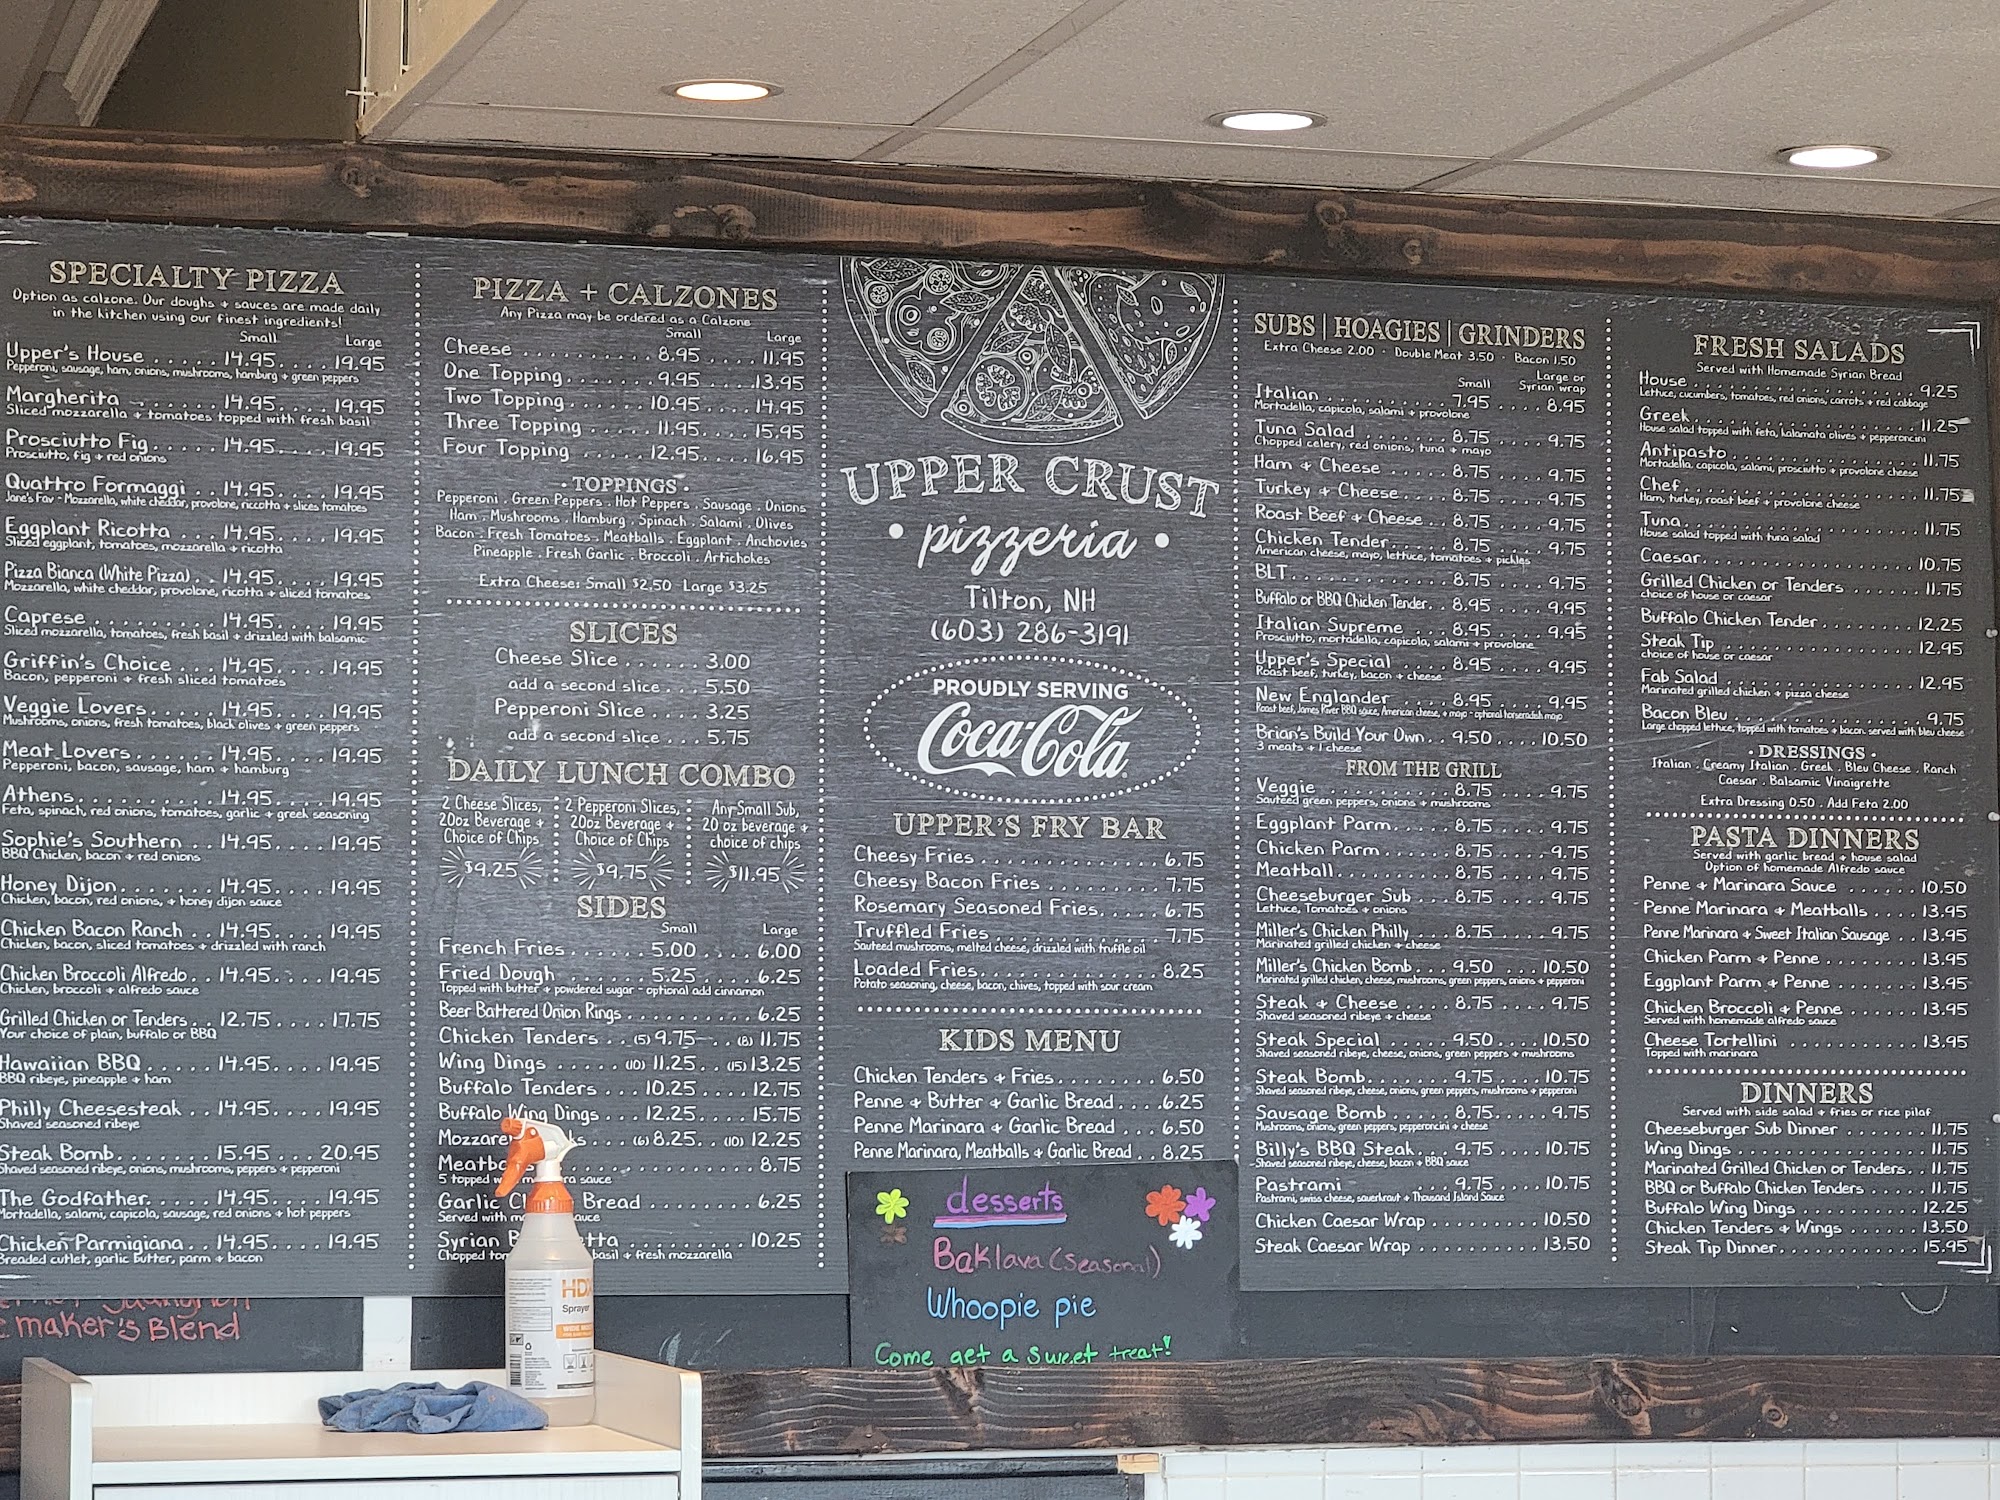 SPECIALTY PIZZA
Option as calzone. Our doughs + sauces are made daily
in the kitchen using our finest ingredients!
Small Large
Upper's House ..... 14.95 .... 19.95
Pepperoni, sausage, ham, onions, mushrooms, hamburg + green peppers
Margherita ....... 14.95 .... 19.95
Sliced mozzarella + tomatoes topped with fresh basil
Prosciutto Fig .... 14.95 .... 19.95
Prosciutto, fig + red onions
Quattro Formaggi .. 14.95 .... 19.95
Jane's Fav - Mozzarella, white cheddar, provolone, riccotta + slices tomatoes
Eggplant Ricotta ... 14.95 .... 19.95
Sliced eggplant, tomatoes, mozzarella + ricotta
Pizza Bianca (White Pizza) .. 14.95 .... 19.95
Mozzarella, white cheddar, provolone, ricotta + sliced tomatoes
Caprese ........ 14.95 .... 19.95
Sliced mozzarella, tomatoes, fresh basil + drizzled with balsamic
Griffin's Choice ... 14.95 .... 19.95
Bacon, pepperoni + fresh sliced tomatoes
Veggie Lovers ..... 14.95 .... 19.95
Mushrooms, onions, fresh tomatoes, black olives + green peppers
Meat Lovers ...... 14.95 .... 19.95
Pepperoni, bacon, sausage, ham + hamburg
Athens ......... 14.95 .... 19.95
Feta, spinach, red onions, tomatoes, garlic + greek seasoning
Sophie's Southern .. 14.95 .... 19.95
BBQ Chicken, bacon + red onions
Honey Dijon ...... 14.95 .... 19.95
Chicken, bacon, red onions, + honey dijon sauce
Chicken Bacon Ranch .. 14.95 .... 19.95
Chicken, bacon, sliced tomatoes + drizzled with ranch
Chicken Broccoli Alfredo .. 14.95 .... 19.95
Chicken, broccoli + alfredo sauce
Grilled Chicken or Tenders .. 12.75 .... 17.75
Your choice of plain, buffalo or BBQ
Hawaiian BBQ ..... 14.95 .... 19.95
BBQ ribeye, pineapple + ham
Philly Cheesesteak .. 14.95 .... 19.95
Shaved seasoned ribeye
Steak Bomb ...... 15.95 ... 20.95
Shaved seasoned ribeye, onions, mushrooms, peppers + pepperoni
The Godfather .... 14.95 .... 19.95
Mortadella, salami, capicola, sausage, red onions + hot peppers
Chicken Parmigiana .. 14.95 .... 19.95
Breaded cutlet, garlic butter, parm + bacon
maker's Blend
PIZZA + CALZONES
Any Pizza may be ordered as a Calzone
Small Large
Cheese .......... 8.95 .... 11.95
One Topping ....... 9.95 .... 13.95
Two Topping ...... 10.95 .... 14.95
Three Topping ..... 11.95 .... 15.95
Four Topping ...... 12.95 .... 16.95
· TOPPINGS ·
Pepperoni . Green Peppers . Hot Peppers . Sausage . Onions
Ham . Mushrooms . Hamburg . Spinach . Salami . Olives
Bacon . Fresh Tomatoes . Meatballs . Eggplant . Anchovies
Pineapple . Fresh Garlic . Broccoli . Artichokes
Extra Cheese: Small $2.50 Large $3.25
SLICES
Cheese Slice ...... 3.00
add a second slice ... 5.50
Pepperoni Slice .... 3.25
add a second slice ... 5.75
DAILY LUNCH COMBO
2 Cheese Slices,
20oz Beverage +
Choice of Chips
$9.25
2 Pepperoni Slices,
20oz Beverage +
Choice of Chips
$9.75
Any Small Sub,
20 oz beverage +
choice of chips
$11.95
SIDES
Small Large
French Fries ...... 5.00 ..... 6.00
Fried Dough ...... 5.25 .... 6.25
Topped with butter + powdered sugar - optional add cinnamon
Beer Battered Onion Rings ......... 6.25
Chicken Tenders .. (5) 9.75 .. (8) 11.75
Wing Dings ..... (10) 11.25 ... (15) 13.25
Buffalo Tenders ... 10.25 ... 12.75
Buffalo Wing Dings ... 12.25 ... 15.75
(6) 8.25 .. (10) 12.25
8.75
5 topped sauce
Garlic Bread ........ 6.25
Served with
Syrian 10.25
Chopped basil + fresh mozzarella
HDX
Sprayer
UPPER CRUST
· pizzeria ·
Tilton, NH
(603) 286-3191
PROUDLY SERVING
Coca-Cola
UPPER'S FRY BAR
Cheesy Fries .............. 6.75
Cheesy Bacon Fries ......... 7.75
Rosemary Seasoned Fries ..... 6.75
Truffled Fries ............. 7.75
Sauteed mushrooms, melted cheese, drizzled with truffle oil
Loaded Fries .............. 8.25
Potato seasoning, cheese, bacon, chives, topped with sour cream
KIDS MENU
Chicken Tenders + Fries ........ 6.50
Penne + Butter + Garlic Bread .... 6.25
Penne Marinara + Garlic Bread ... 6.50
Penne Marinara, Meatballs + Garlic Bread .. 8.25
desserts
Baklava (seasonal)
Whoopie pie
Come get a sweet treat!
SUBS | HOAGIES | GRINDERS
Extra Cheese 2.00 · Double Meat 3.50 · Bacon 1.50
Small Large or
Syrian wrap
Italian ........... 7.95 .... 8.95
Mortadella, capicola, salami + provolone
Tuna Salad ....... 8.75 .... 9.75
Chopped celery, red onions, tuna + mayo
Ham + Cheese ..... 8.75 .... 9.75
Turkey + Cheese .... 8.75 .... 9.75
Roast Beef + Cheese .. 8.75 .... 9.75
Chicken Tender ..... 8.75 .... 9.75
American cheese, mayo, lettuce, tomatoes + pickles
BLT ............. 8.75 .... 9.75
Buffalo or BBQ Chicken Tender .. 8.95 .... 9.95
Italian Supreme .... 8.95 .... 9.95
Prosciutto, mortadella, capicola, salami + provolone
Upper's Special .... 8.95 .... 9.95
Roast beef, turkey, bacon + cheese
New Englander .... 8.95 .... 9.95
Roast beef, James River BBQ sauce, American cheese, + mayo - optional horseradish mayo
Brian's Build Your Own .. 9.50 .... 10.50
3 meats + 1 cheese
FROM THE GRILL
Veggie .......... 8.75 .... 9.75
Sauteed green peppers, onions + mushrooms
Eggplant Parm ..... 8.75 .... 9.75
Chicken Parm ..... 8.75 .... 9.75
Meatball ......... 8.75 .... 9.75
Cheeseburger Sub ... 8.75 .... 9.75
Lettuce, Tomatoes + onions
Miller's Chicken Philly ... 8.75 .... 9.75
Marinated grilled chicken + cheese
Miller's Chicken Bomb ... 9.50 ... 10.50
Marinated grilled chicken, cheese, mushrooms, green peppers, onions + pepperoni
Steak + Cheese .... 8.75 .... 9.75
Shaved seasoned ribeye + cheese
Steak Special ...... 9.50 .... 10.50
Shaved seasoned ribeye, cheese, onions, green peppers + mushrooms
Steak Bomb ....... 9.75 .... 10.75
Shaved seasoned ribeye, cheese, onions, green peppers, mushrooms + pepperoni
Sausage Bomb ..... 8.75 .... 9.75
Mushrooms, onions, green peppers, pepperoncini + cheese
Billy's BBQ Steak ... 9.75 .... 10.75
Shaved seasoned ribeye, cheese, bacon + BBQ sauce
Pastrami ...... 9.75 .... 10.75
Pastrami, swiss cheese, sauerkraut + Thousand Island Sauce
Chicken Caesar Wrap ......... 10.50
Steak Caesar Wrap .......... 13.50
FRESH SALADS
Served with Homemade Syrian Bread
House ................. 9.25
Lettuce, cucumbers, tomatoes, red onions, carrots + red cabbage
Greek ................. 11.25
House salad topped with feta, kalamata olives + pepperoncini
Antipasto .............. 11.75
Mortadella, capicola, salami, prosciutto + provolone cheese
Chef .................. 11.75
Ham, turkey, roast beef + provolone cheese
Tuna .................. 11.75
House salad topped with tuna salad
Caesar ................ 10.75
Grilled Chicken or Tenders ..... 11.75
choice of house or caesar
Buffalo Chicken Tender ....... 12.25
Steak Tip .............. 12.95
choice of house or caesar
Fab Salad .............. 12.95
Marinated grilled chicken + pizza cheese
Bacon Bleu ............. 9.75
Large chopped lettuce, topped with tomatoes + bacon. served with bleu cheese
· DRESSINGS ·
Italian . Creamy Italian . Greek . Bleu Cheese . Ranch
Caesar . Balsamic Vinaigrette
Extra Dressing 0.50 . Add Feta 2.00
PASTA DINNERS
Served with garlic bread + house salad
Option of homemade Alfredo sauce
Penne + Marinara Sauce ...... 10.50
Penne Marinara + Meatballs .... 13.95
Penne Marinara + Sweet Italian Sausage .. 13.95
Chicken Parm + Penne ........ 13.95
Eggplant Parm + Penne ....... 13.95
Chicken Broccoli + Penne ...... 13.95
Served with homemade alfredo sauce
Cheese Tortellini ........... 13.95
Topped with marinara
DINNERS
Served with side salad + fries or rice pilaf
Cheeseburger Sub Dinner ....... 11.75
Wing Dings ............... 11.75
Marinated Grilled Chicken or Tenders .. 11.75
BBQ or Buffalo Chicken Tenders ..... 11.75
Buffalo Wing Dings .......... 12.25
Chicken Tenders + Wings ....... 13.50
Steak Tip Dinner ............ 15.95